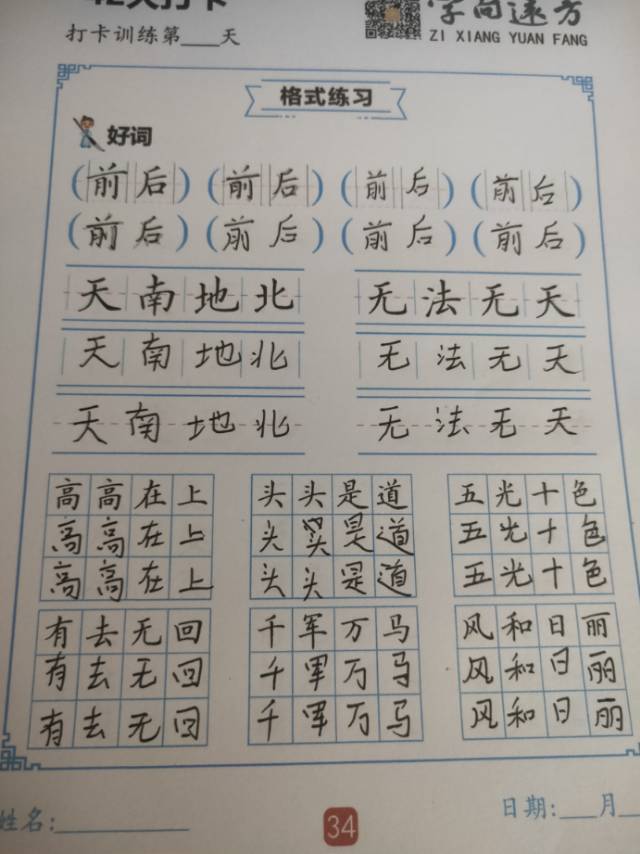 42天打卡
字向远方
打卡训练第___天
ZI XIANG YUAN FANG
格式练习
好词
(前后) (前后) (前后) (前后)
(前后) (前后) (前后) (前后)
天南地北 无法无天
天南地北 无法无天
天南地北 无法无天
高高在上 头头是道 五光十色
高高在上 头头是道 五光十色
高高在上 头头是道 五光十色
有去无回 千军万马 风和日丽
有去无回 千军万马 风和日丽
有去无回 千军万马 风和日丽
姓名:__________ 日期:___月__
34